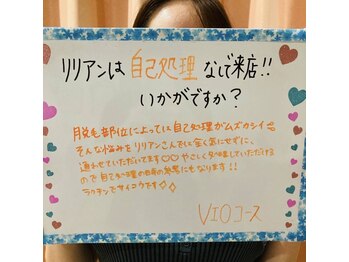 リリアンは自己処理なしで来店!!
いかがですか?
脱毛部位によっては自己処理がムズカシイ
そんな悩みをリリアンさんでは全く気にせずに、
通わせていただいてます♡♡ やさしく処理していただける
ので自己処理の日頃の
ラクチンでサイコウです◇◇
VIOコース